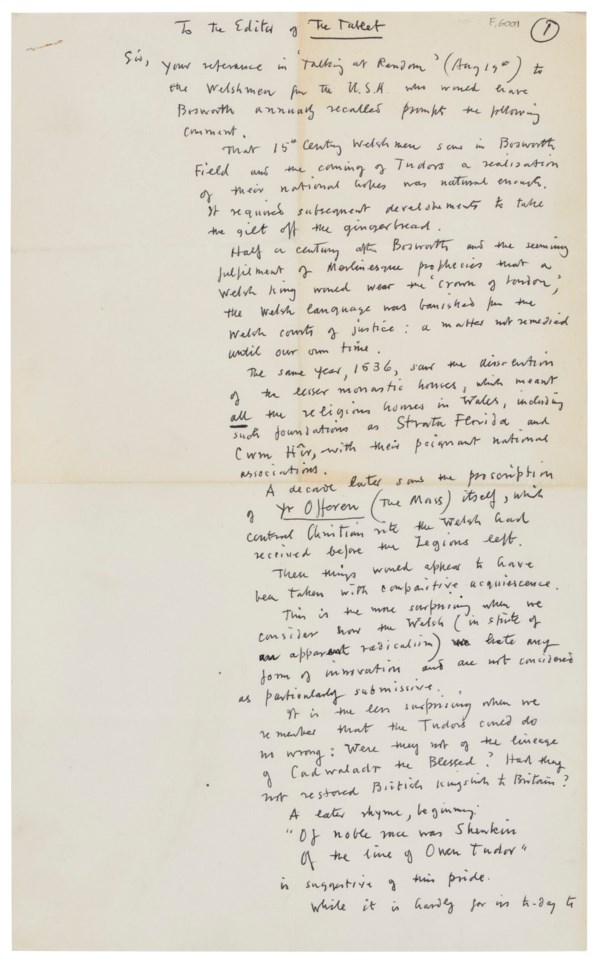 To the Editor of The Tablet
F. 6001
1
Sir, Your reference in 'Talking at Random' (Aug 19th) to
the Welshmen for the U.S.A. who would have
Bosworth annually recalled prompts the following
comment.
That 15th Century Welshmen saw in Bosworth
Field and the coming of Tudors a realisation
of their national hopes was natural enough.
It required subsequent developements to take
the gilt off the gingerbread.
Half a century after Bosworth and the seeming
fulfilment of Merlinesque prophecies that a
Welsh king would wear the 'crown of London',
the Welsh language was banished fm the
Welsh courts of justice: a matter not remedied
until our own time.
The same year, 1536, saw the dissolution
of the lesser monastic houses, which meant
all the religious houses in Wales, including
such foundations as Strata Florida and
Cwm Hîr, with their poignant national
associations.
A decade later saw the proscription
of Yr Offeren (The Mass) itself, which
central Christian rite the Welsh had
received before the Legions left.
These things would appear to have
been taken with comparitive acquiescence.
This is the more surprising when we
consider how the Welsh (in spite of
an apparent radicalism) hate any
form of innovation and are not considered
as particularly submissive.
It is the less surprising when we
remember that the Tudors could do
no wrong: Were they not of the lineage
of Cadwaladr the Blessed? Had they
not restored British kingship to Britain?
A later rhyme, beginning:
"Of noble race was Shenkin
Of the line of Owen Tudor"
is suggestive of this pride.
While it is hardly for us to-day to